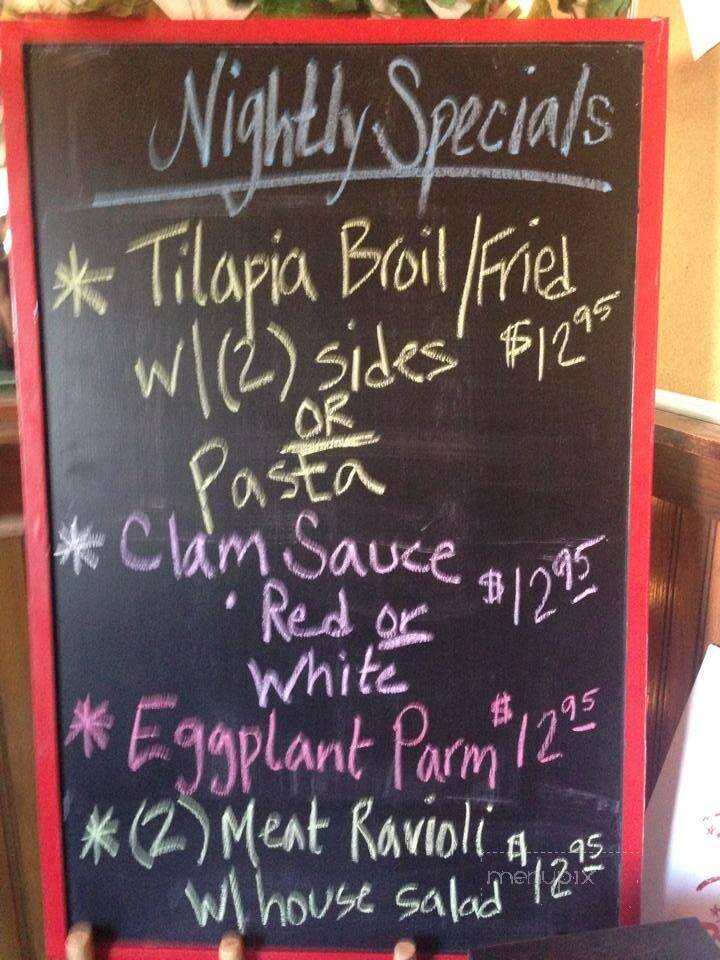 Nightly Specials
* Tilapia Broil/Fried
w/(2) sides $12.95
OR
Pasta
* Clam Sauce $12.95
· Red or
White
* Eggplant Parm $12.95
* (2) Meat Ravioli $12.95
w/ house salad
menupix